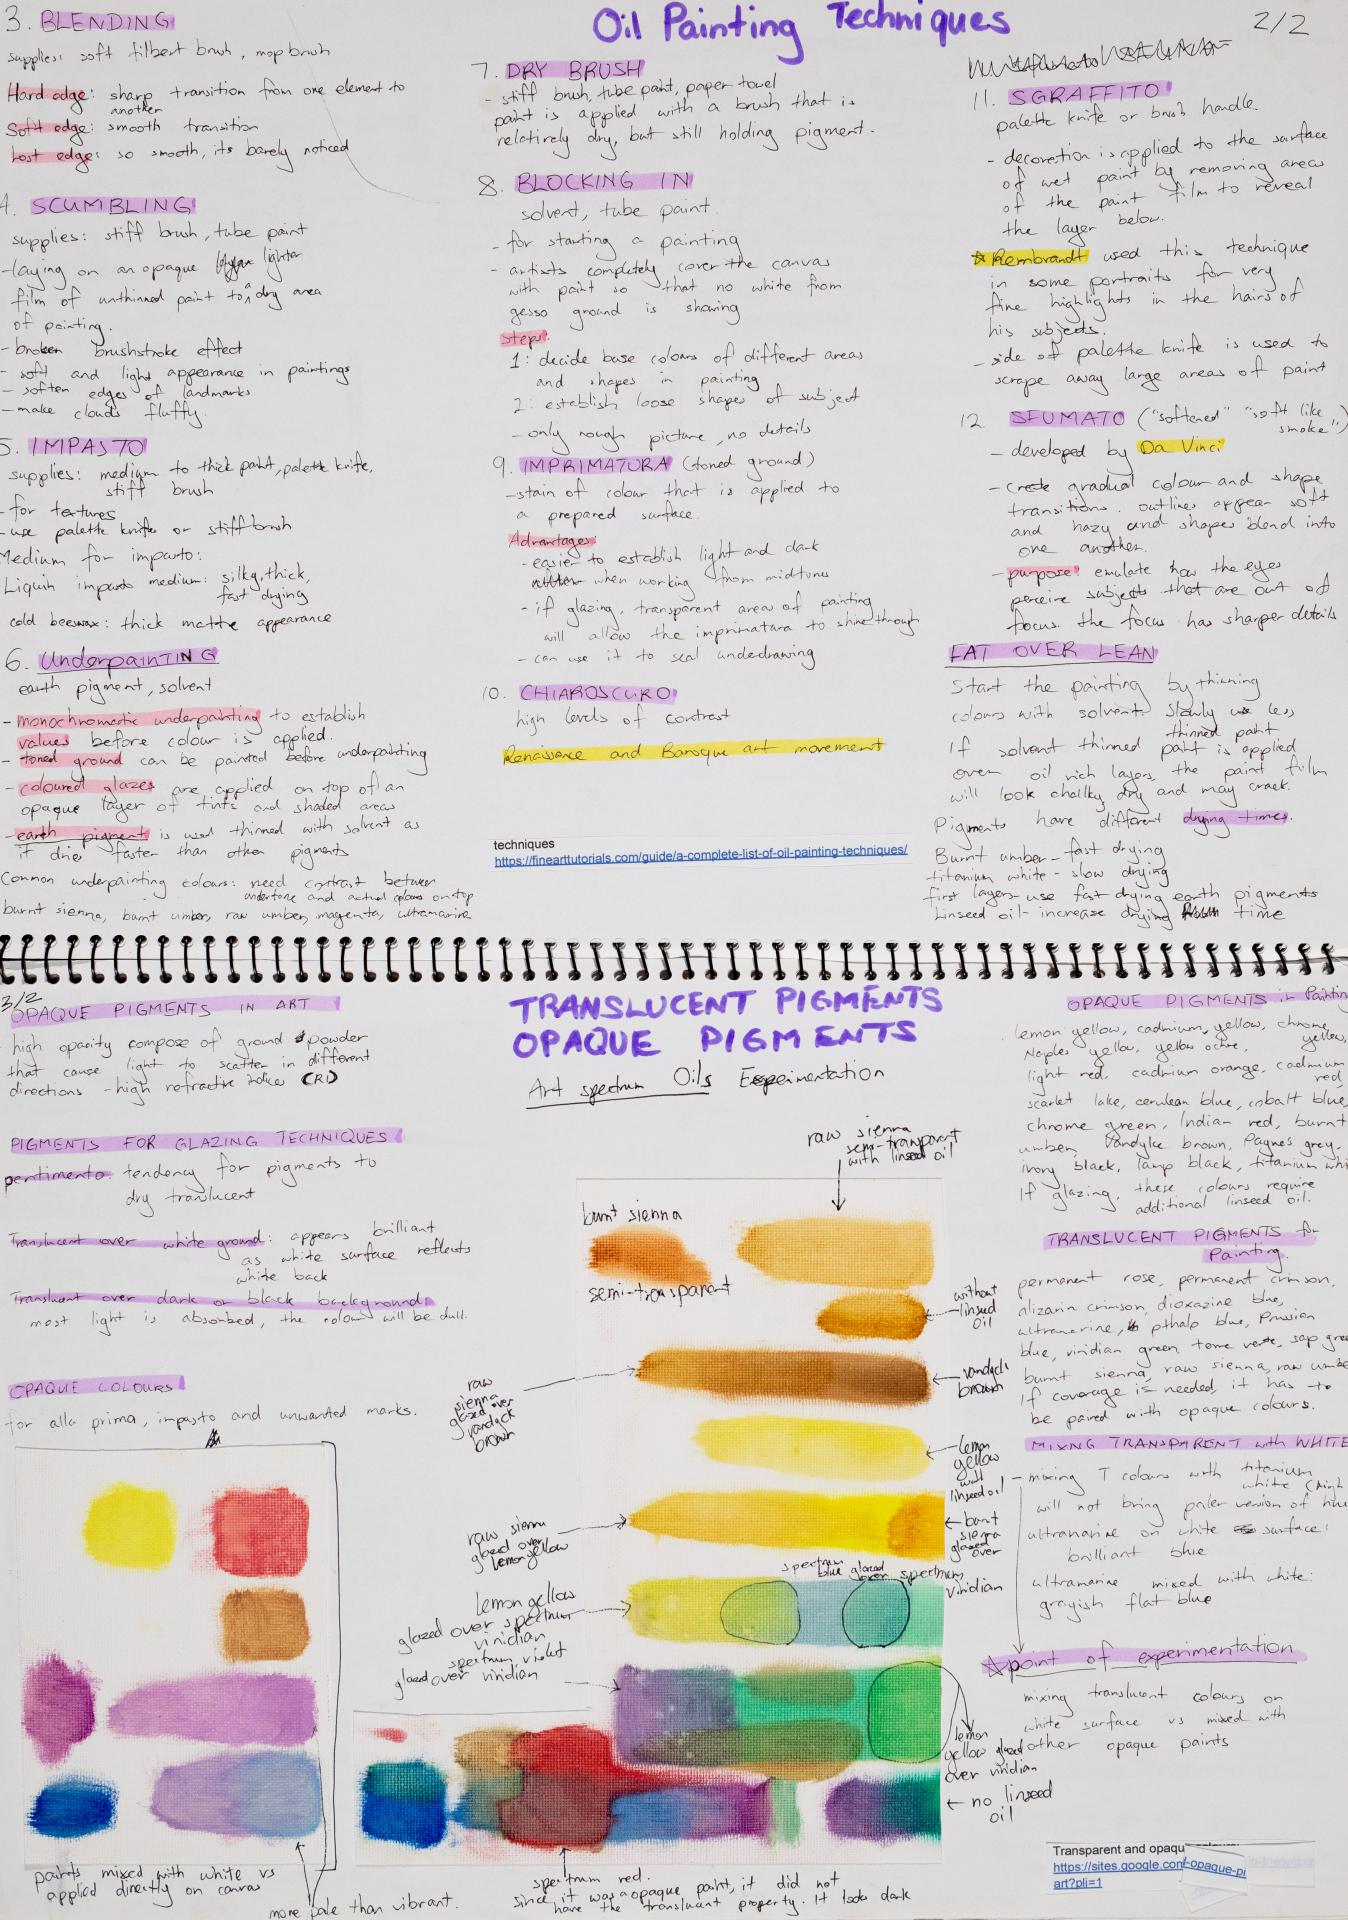 Oil Painting Techniques
2/2
3. BLENDING
supplies: soft filbert brush, mop brush
Hard edge: sharp transition from one element to
another
Soft edge: smooth transition
Lost edge: so smooth, its barely noticed
4. SCUMBLING
supplies: stiff brush, tube paint
-laying on an opaque lighter
film of unthinned paint to a dry area
of painting.
- broken brushstroke effect
- soft and light appearance in paintings
- soften edges of landmarks
- make clouds fluffy.
5. IMPASTO
supplies: medium to thick paint, palette knife,
stiff brush
- for textures
- use palette knife or stiff brush
Medium for impasto:
Liquin impasto medium: silky, thick,
fast drying
cold beeswax: thick matte appearance
6. Underpainting
earth pigment, solvent
- monochromatic underpainting to establish
values before colour is applied.
- toned ground can be painted before underpainting
- coloured glazes are applied on top of an
opaque layer of tints and shaded areas
- earth pigment is used thinned with solvent as
it dries faster than other pigments
Common underpainting colours: need contrast between
undertone and actual colours on top
burnt sienna, burnt umber, raw umber, magenta, ultramarine
7. DRY BRUSH
- stiff brush, tube paint, paper towel
paint is applied with a brush that is
relatively dry, but still holding pigment.
8. BLOCKING IN
solvent, tube paint.
- for starting a painting
- artists completely cover the canvas
with paint so that no white from
gesso ground is showing
steps:
1: decide base colours of different areas
and shapes in painting
2: establish loose shapes of subject
- only rough picture, no details
9. IMPRIMATURA (toned ground)
-stain of colour that is applied to
a prepared surface.
Advantages:
- easier to establish light and dark
when working from midtones
- if glazing, transparent areas of painting
will allow the imprimatura to shine through
- can use it to seal underdrawing
10. CHIAROSCURO
high levels of contrast
Renaissance and Baroque art movement
techniques
https://finearttutorials.com/guide/a-complete-list-of-oil-painting-techniques/
11. SGRAFFITO
palette knife or brush handle.
- decoration is applied to the surface
of wet paint by removing areas
of the paint film to reveal
the layer below.
☆ Rembrandt used this technique
in some portraits for very
fine highlights in the hairs of
his subjects.
- side of palette knife is used to
scrape away large areas of paint
12. SFUMATO ("softened" "soft like
smoke")
- developed by Da Vinci
- create gradual colour and shape
transitions. outlines appear soft
and hazy and shapes blend into
one another.
- purpose: emulate how the eyes
perceive subjects that are out of
focus. the focus has sharper details
FAT OVER LEAN
Start the painting by thinning
colours with solvent. Slowly use less
thinned paint
If solvent thinned paint is applied
over oil rich layers, the paint film
will look chalky, dry and may crack.
Pigments have different drying times.
Burnt umber - fast drying
titanium white - slow drying
first layers use fast drying earth pigments
Linseed oil - increase drying time
3/2
OPAQUE PIGMENTS IN ART
- high opacity compose of ground powder
that cause light to scatter in different
directions - high refractive index (RI)
PIGMENTS FOR GLAZING TECHNIQUES
pentimento: tendency for pigments to
dry translucent
Translucent over white ground: appears brilliant
as white surface reflects
white back
Translucent over dark or black background:
most light is absorbed, the colour will be dull.
OPAQUE COLOURS
for alla prima, impasto and unwanted marks.
paints mixed with white vs
applied directly on canvas
more pale than vibrant.
TRANSLUCENT PIGMENTS
OPAQUE PIGMENTS
Art spectrum Oils Experimentation
raw sienna
semi-transparent
with linseed oil
burnt sienna
semi-transparent
without
linseed
oil
raw
sienna
glazed over
vandack
brown
vandack
brown
lemon
yellow
with
linseed oil
raw sienna
glazed over
lemon yellow
burnt
sienna
glazed
over
spectrum
blue glazed
over spectrum
viridian
lemon yellow
glazed over spectrum
viridian
spectrum violet
glazed over viridian
lemon
yellow glazed
over viridian
← no linseed
oil
spectrum red.
since it was a opaque paint, it did not
have the translucent property. It looks dark
OPAQUE PIGMENTS in Painting
lemon yellow, cadmium yellow, chrome
yellow,
Naples yellow, yellow ochre,
light red, cadmium orange, cadmium
red,
scarlet lake, cerulean blue, cobalt blue,
chrome green, Indian red, burnt
umber, Vandyke brown, Paynes grey,
ivory black, lamp black, titanium whi
If glazing, these colours require
additional linseed oil.
TRANSLUCENT PIGMENTS for
Painting.
permanent rose, permanent crimson,
alizarin crimson, dioxazine blue,
ultramarine, pthalo blue, Prussian
blue, viridian green, terre verte, sap gree
burnt sienna, raw sienna, raw umbe
If coverage is needed, it has to
be paired with opaque colours.
MIXNG TRANSPARENT with WHITE
- mixing T colours with titanium
white (high
will not bring paler version of hue
ultramarine on white surface:
brilliant blue
ultramarine mixed with white:
grayish flat blue
☆ point of experimentation
mixing translucent colours on
white surface vs mixed with
other opaque paints
Transparent and opaqu
https://sites.google.com/ -opaque-pi
art?pli=1